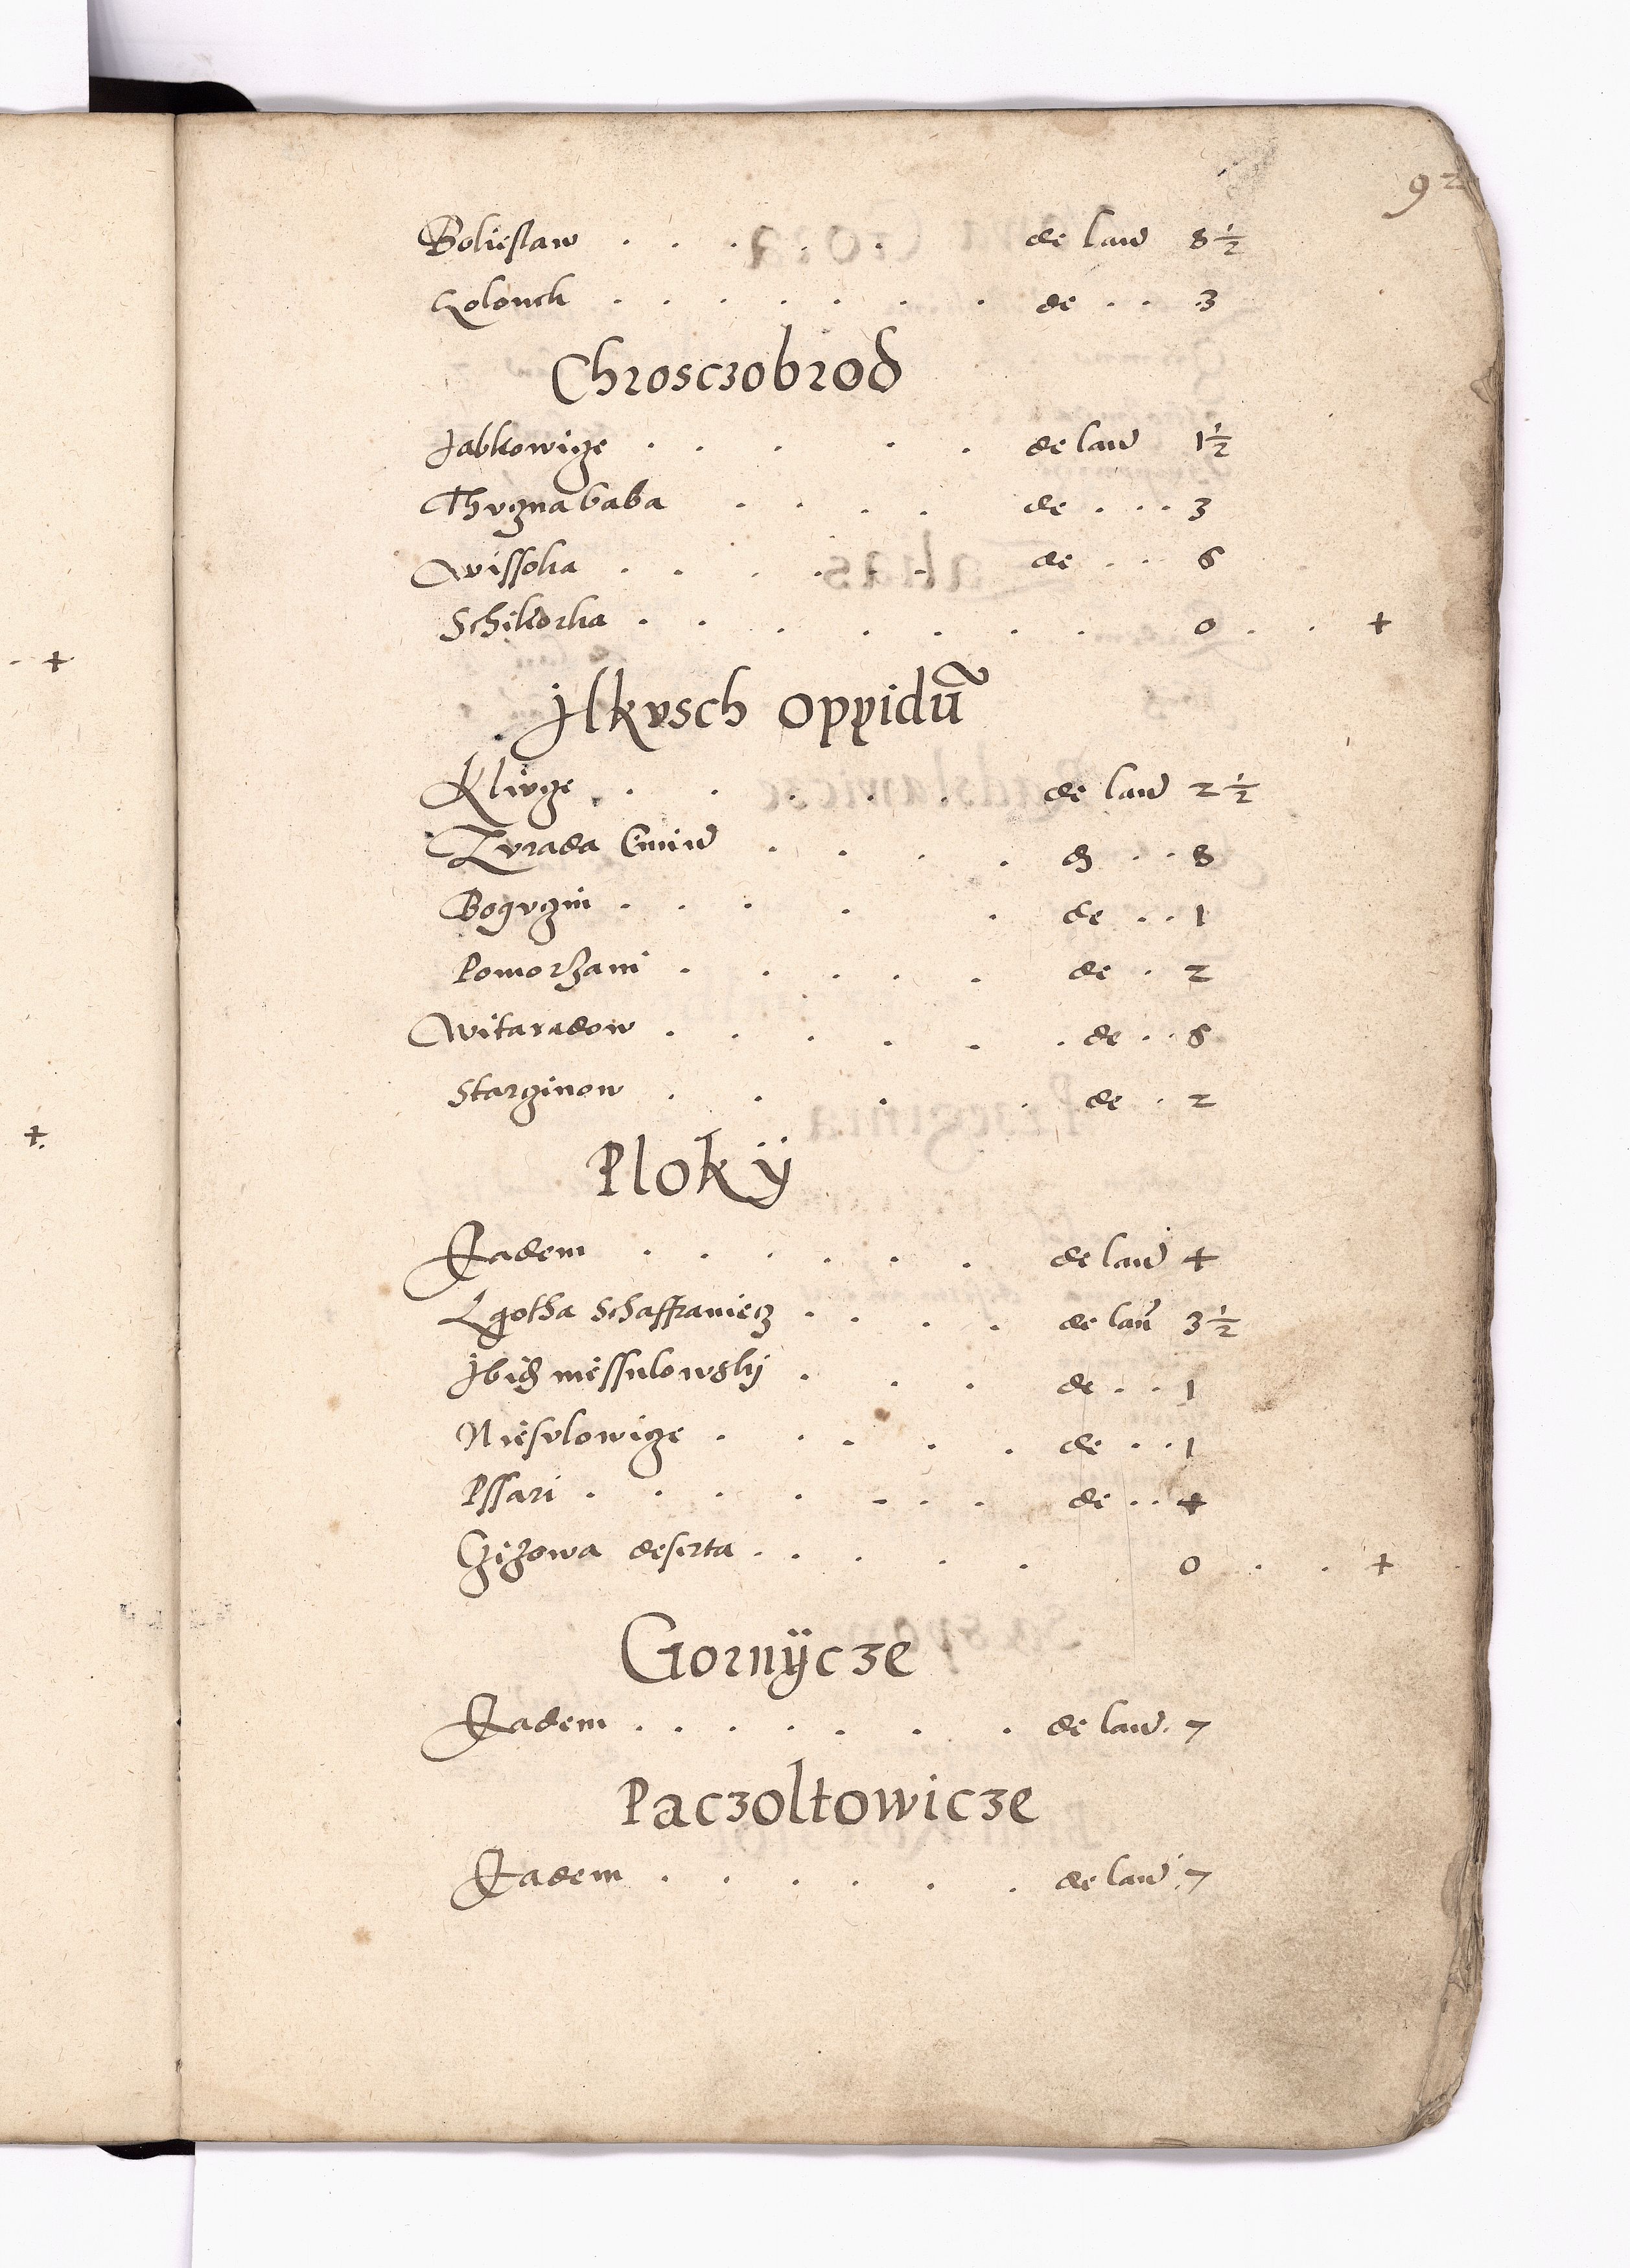 92
Boliеslaw . . . . . de lan 8 1/2
Kolonch . . . . . . . de . . . 3
Chrosczobrod
Jabkowicze . . . . . de lan 1 1/2
Thvcznababa . . . . de . . . 3
Wissoka . . . . . . de . . . 6
Schikorka . . . . . . . 0 . . +
Jlkvsch oppidu
Klivcze . . . . . . de lan 2 1/2
Zvrada Cmin . . . . de . . 8
Bogvczin . . . . . de . . 1
Pomorzani . . . . . de . 2
Witaradow . . . . . . de . . 6
Starczinow . . . . de . 2
Plokÿ
Eadem . . . . . . de lan 4
Lgotha Schaffraniecz . . . . de lan 3 1/2
Jbid messulowskÿ . . . de . . 1
Niesvlowicze . . . . . de . . 1
Pssari . . . . . . . de . . 4
Czizowa deserta . . . . . 0 . . +
Gornÿcze
Eadem . . . . . . . de lan . 7
Paczoltowicze
Eadem . . . . . . de lan . 7